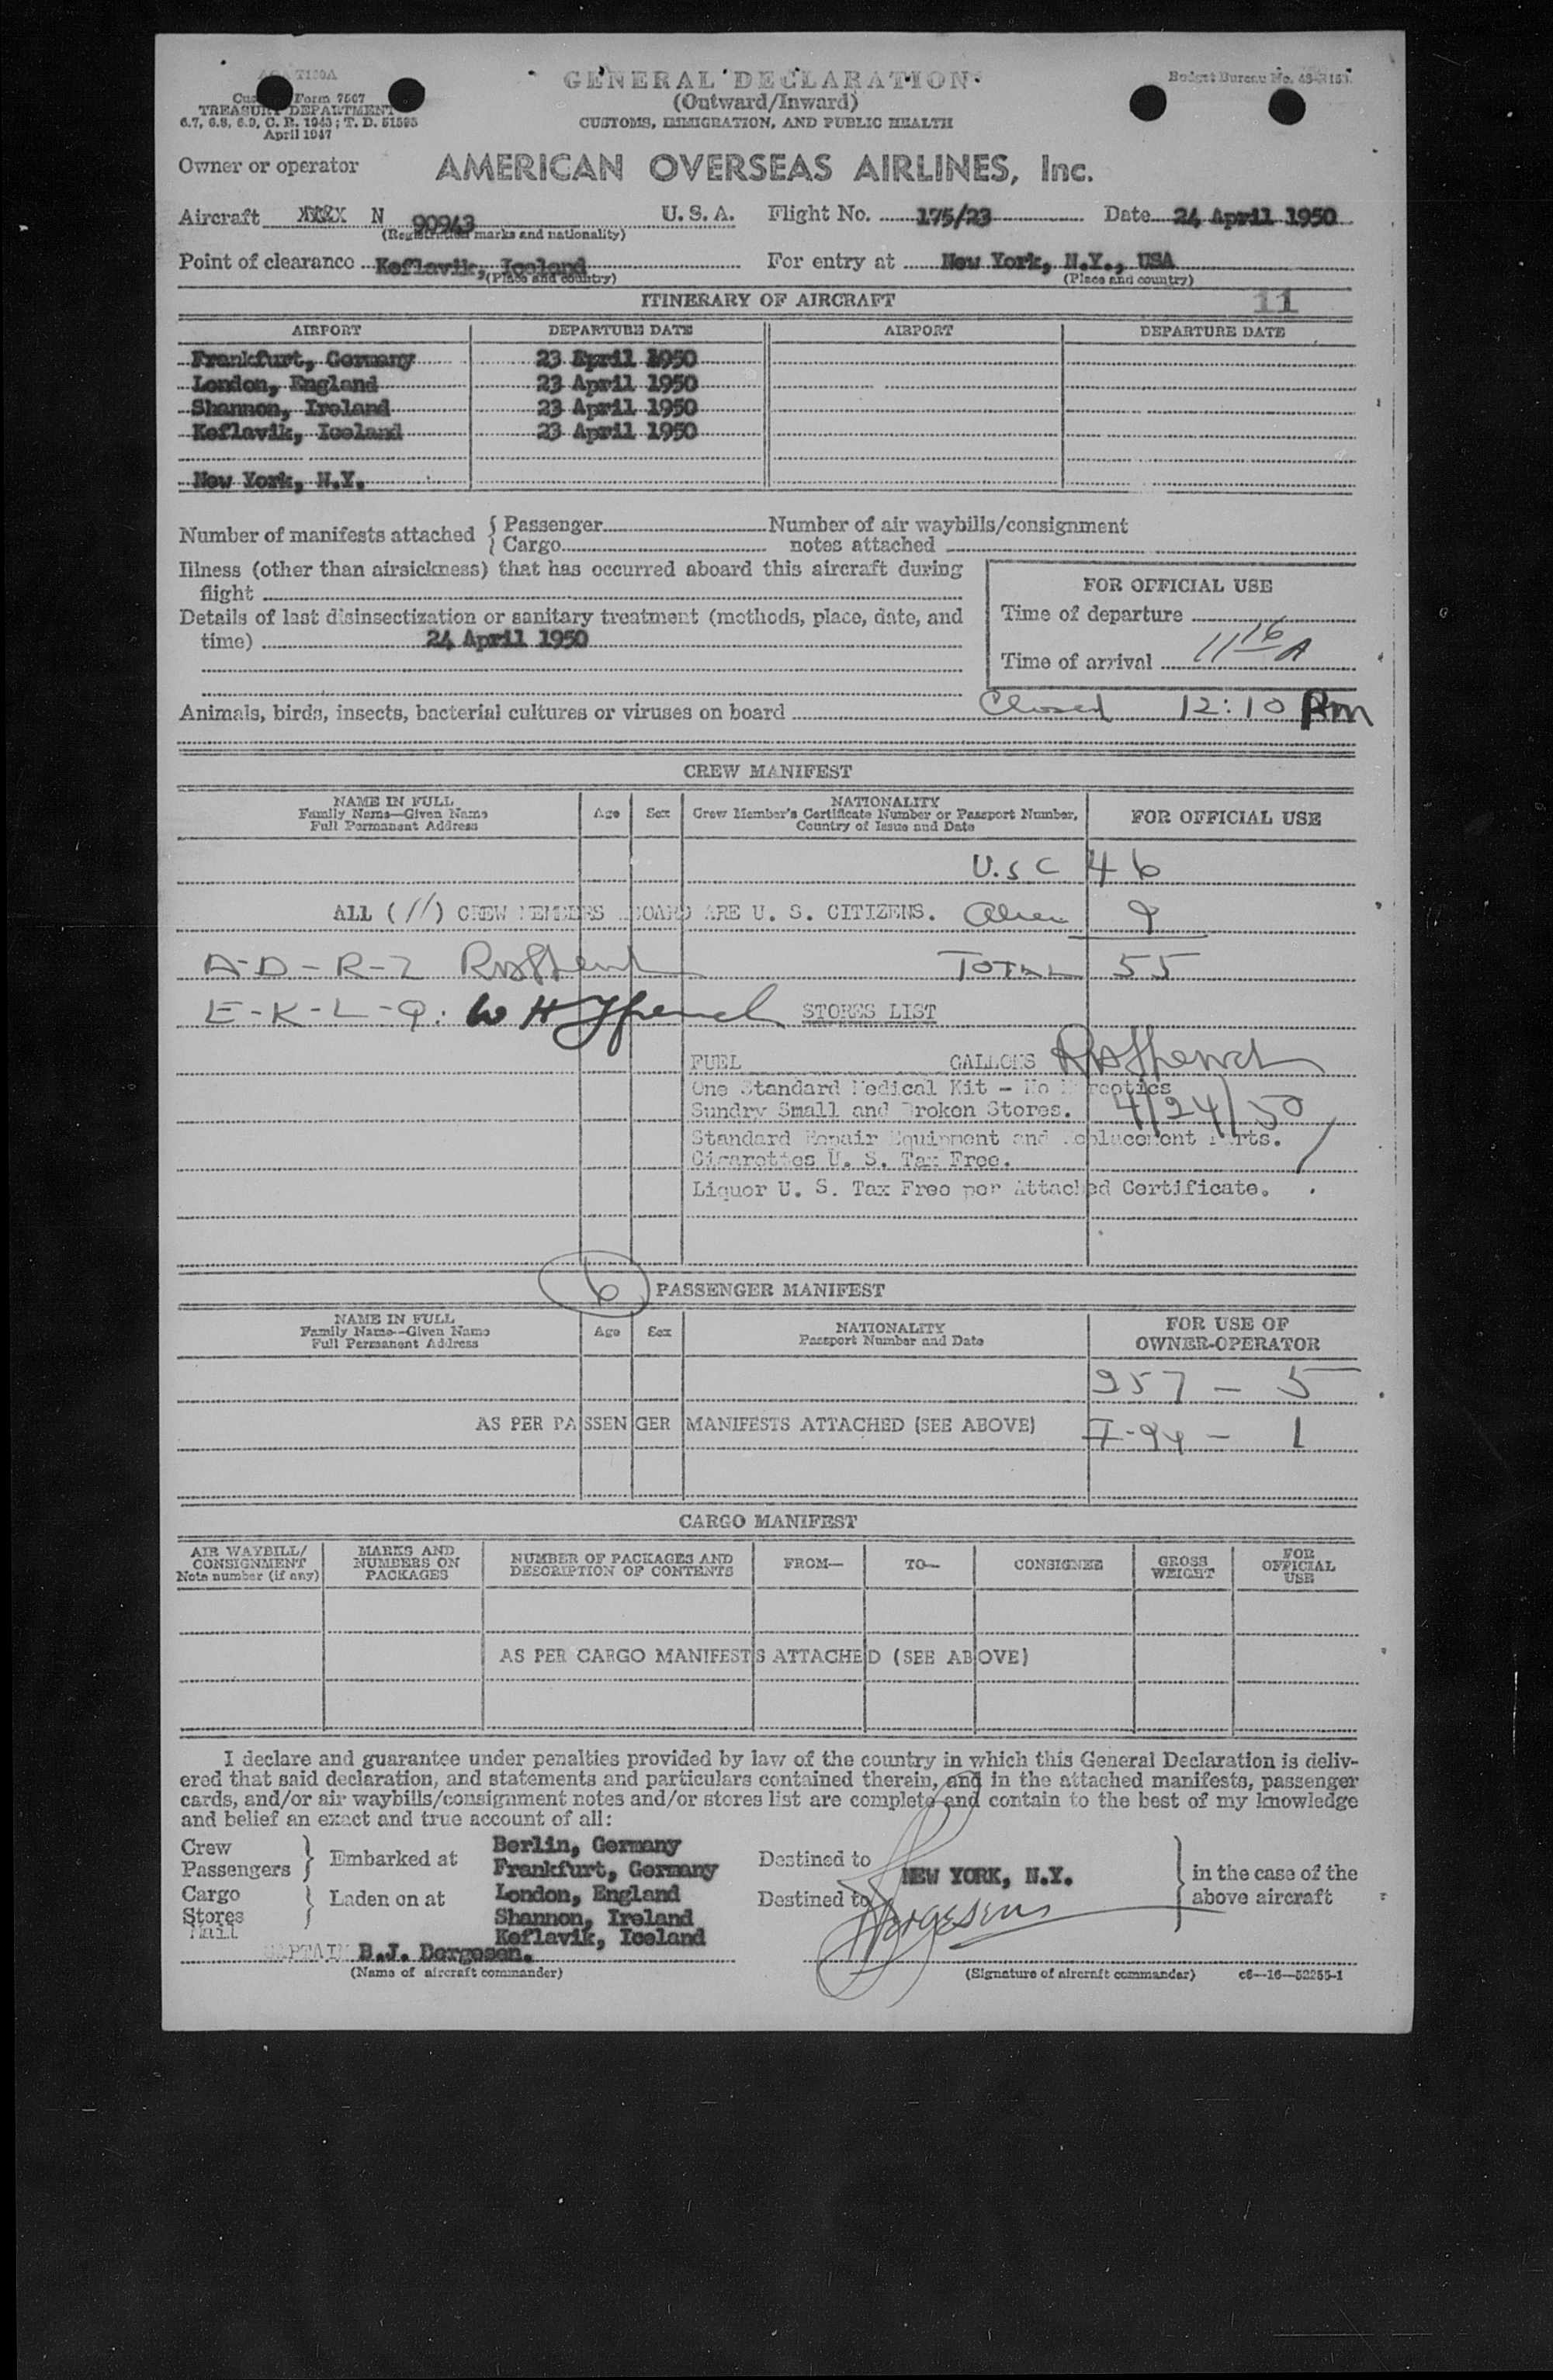 T100A
Customs Form 7507
TREASURY DEPARTMENT
6.7, 6.8, 6.9, C. R. 1943; T. D. 51595
April 1947
GENERAL DECLARATION
(Outward/Inward)
CUSTOMS, IMMIGRATION, AND PUBLIC HEALTH
Budget Bureau No.
Owner or operator AMERICAN OVERSEAS AIRLINES, Inc.
Aircraft N 90943 U. S. A. Flight No. 175/23 Date 24 April 1950
(Registration marks and nationality)
Point of clearance Keflavik, Iceland For entry at New York, N.Y., USA
(Place and country) (Place and country)
ITINERARY OF AIRCRAFT 11
AIRPORT DEPARTURE DATE AIRPORT DEPARTURE DATE
Frankfurt, Germany 23 April 1950
London, England 23 April 1950
Shannon, Ireland 23 April 1950
Keflavik, Iceland 23 April 1950
New York, N.Y.
Number of manifests attached { Passenger Number of air waybills/consignment
Cargo notes attached
Illness (other than airsickness) that has occurred aboard this aircraft during
flight
FOR OFFICIAL USE
Details of last disinsectization or sanitary treatment (methods, place, date, and
time) 24 April 1950
Time of departure
Time of arrival 11 16 A
Animals, birds, insects, bacterial cultures or viruses on board Closed 12:10 Pm
CREW MANIFEST
NAME IN FULL
Family Name—Given Name
Full Permanent Address
Age Sex
NATIONALITY
Crew Member's Certificate Number or Passport Number,
Country of Issue and Date
FOR OFFICIAL USE
U.S C 46
ALL (11) CREW MEMBERS ABOARD ARE U. S. CITIZENS. Alien 9
A-D-R-Z TOTAL 55
E-K-L-Q: STORES LIST
FUEL GALLONS
One Standard Medical Kit - No Narcotics
Sundry Small and Broken Stores. 4/24/50
Standard Repair Equipment and Replacement Parts.
Cigarettes U. S. Tax Free.
Liquor U. S. Tax Free per Attached Certificate.
6 PASSENGER MANIFEST
NAME IN FULL
Family Name—Given Name
Full Permanent Address
Age Sex
NATIONALITY
Passport Number and Date
FOR USE OF
OWNER-OPERATOR
957 - 5
AS PER PASSENGER MANIFESTS ATTACHED (SEE ABOVE)
I-94 - 1
CARGO MANIFEST
AIR WAYBILL/
CONSIGNMENT
Note number (if any)
MARKS AND
NUMBERS ON
PACKAGES
NUMBER OF PACKAGES AND
DESCRIPTION OF CONTENTS
FROM— TO— CONSIGNEE
GROSS
WEIGHT
FOR
OFFICIAL
USE
AS PER CARGO MANIFESTS ATTACHED (SEE ABOVE)
I declare and guarantee under penalties provided by law of the country in which this General Declaration is deliv-
ered that said declaration, and statements and particulars contained therein, and in the attached manifests, passenger
cards, and/or air waybills/consignment notes and/or stores list are complete and contain to the best of my knowledge
and belief an exact and true account of all:
Crew
Passengers } Embarked at
Cargo
Stores } Laden on at
Mail
Berlin, Germany
Frankfurt, Germany
London, England
Shannon, Ireland
Keflavik, Iceland
Destined to
Destined to
NEW YORK, N.Y.
in the case of the
above aircraft
CAPTAIN B.J. Bergesen.
(Name of aircraft commander) (Signature of aircraft commander) c6—16—52255-1